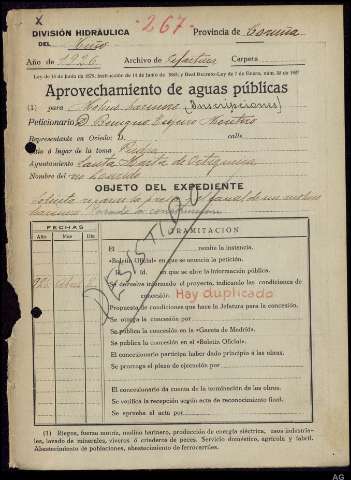 X
-267-
DIVISIÓN HIDRÁULICA
DEL Miño
Provincia de Coruña
Año de 1926 Archivo de Carpeta
Ley de 13 de Junio de 1879, Instrucción de 14 de Junio de 1883, y Real Decreto-Ley de 7 de Enero, núm. 33 de 1927
Aprovechamiento de aguas públicas
(1) para Molino harinero (Inscripciones)
Peticionario D. Benigno Montero
Representante en Oviedo: D. calle
Río ó lugar de la toma
Ayuntamiento Santa Marta de Ortigueira
Nombre del
OBJETO DEL EXPEDIENTE
reparar la presa y canal de un molino
harinero
FECHAS
Año Mes Día
TRAMITACIÓN
El remite la instancia.
«Boletín Oficial» en que se anuncia la petición.
Id. en que se abre la información pública.
Se informa el proyecto, indicando las condiciones de
concesión. Hay duplicado
Propuesta de condiciones que hace la Jefatura para la concesión.
Se otorga la concesión
Se publica la concesión en la «Gaceta de Madrid».
Se publica la concesión en el «Boletín Oficial».
El concesionario participa haber dado principio á las obras.
Se prorroga el plazo de ejecución por
El concesionario da cuenta de la terminación de las obras.
Se verifica la recepción según acta de reconocimiento final.
Se aprueba el acta por
DESISTIDO
(1) Riegos, fuerza motriz, molino harinero, producción de energía eléctrica, usos industria-
les, lavado de minerales, viveros ó criaderos de peces. Servicio doméstico, agrícola y fabril.
Abastecimiento de poblaciones, abastecimiento de ferrocarriles.
AG